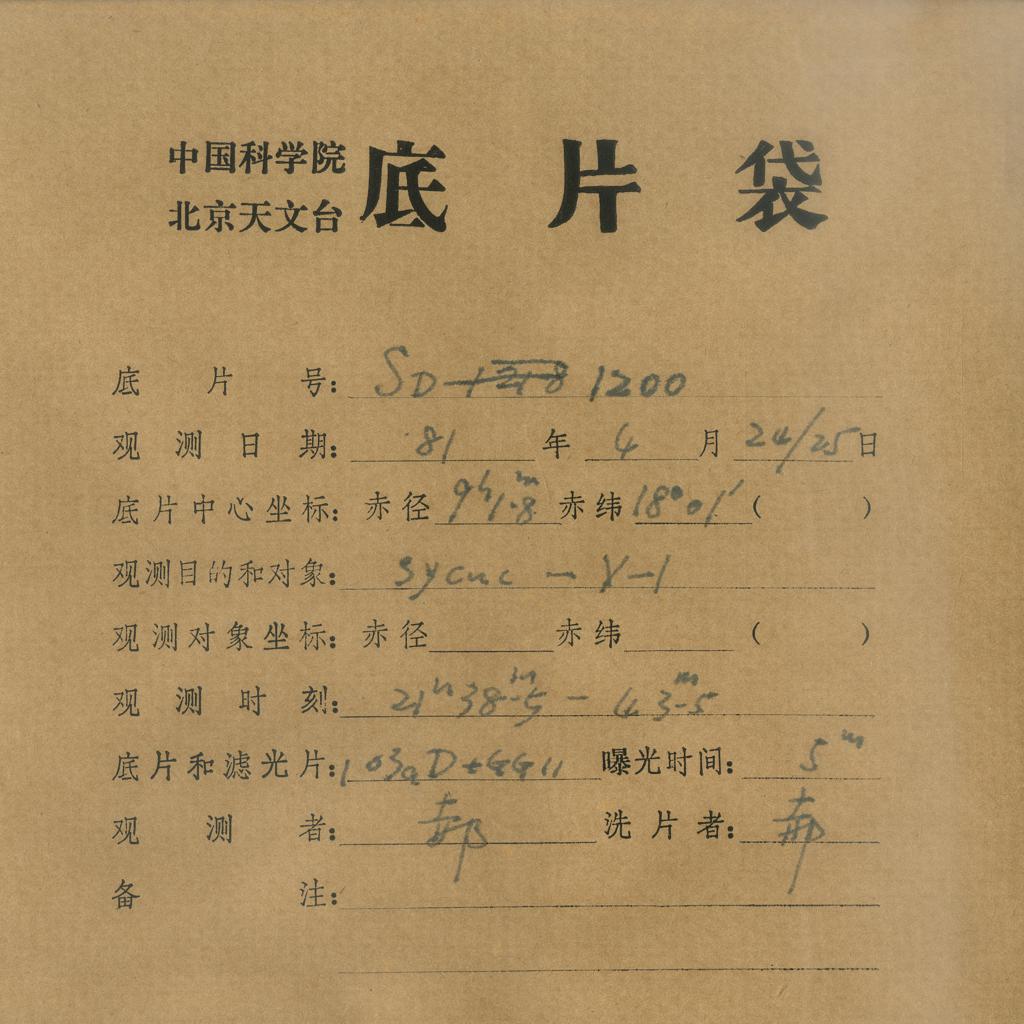 中国科学院
北京天文台
底片袋
底片号: SD 1200
观测日期: 81 年 4 月 24/25 日
底片中心坐标: 赤径 9h1.m8 赤纬 18°01′ ( )
观测目的和对象: SyCnc — V-1
观测对象坐标: 赤径 赤纬 ( )
观测时刻: 21h38m.5 — 43m.5
底片和滤光片: 103aD+GG11 曝光时间: 5m
观测者: 郝 洗片者: 郝
备注: